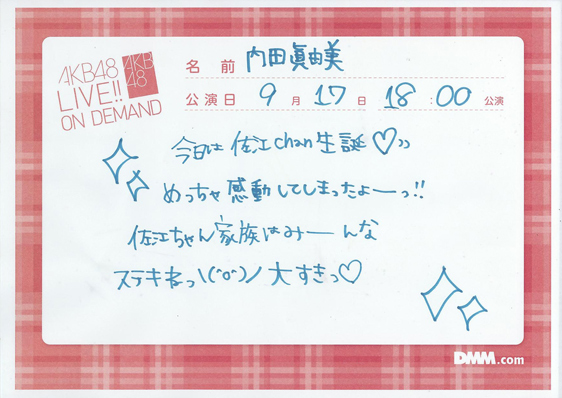 AKB48
LIVE!!
ON DEMAND
AKB
48
名 前 内田眞由美
公演日 9 月 17 日 18:00 公演
今日は 佐江chan生誕♡))
めっちゃ感動してしまったよーっ!!
佐江ちゃん家族はみーんな
ステキねっ\(^o^)ノ 大すきっ♡
DMM.com